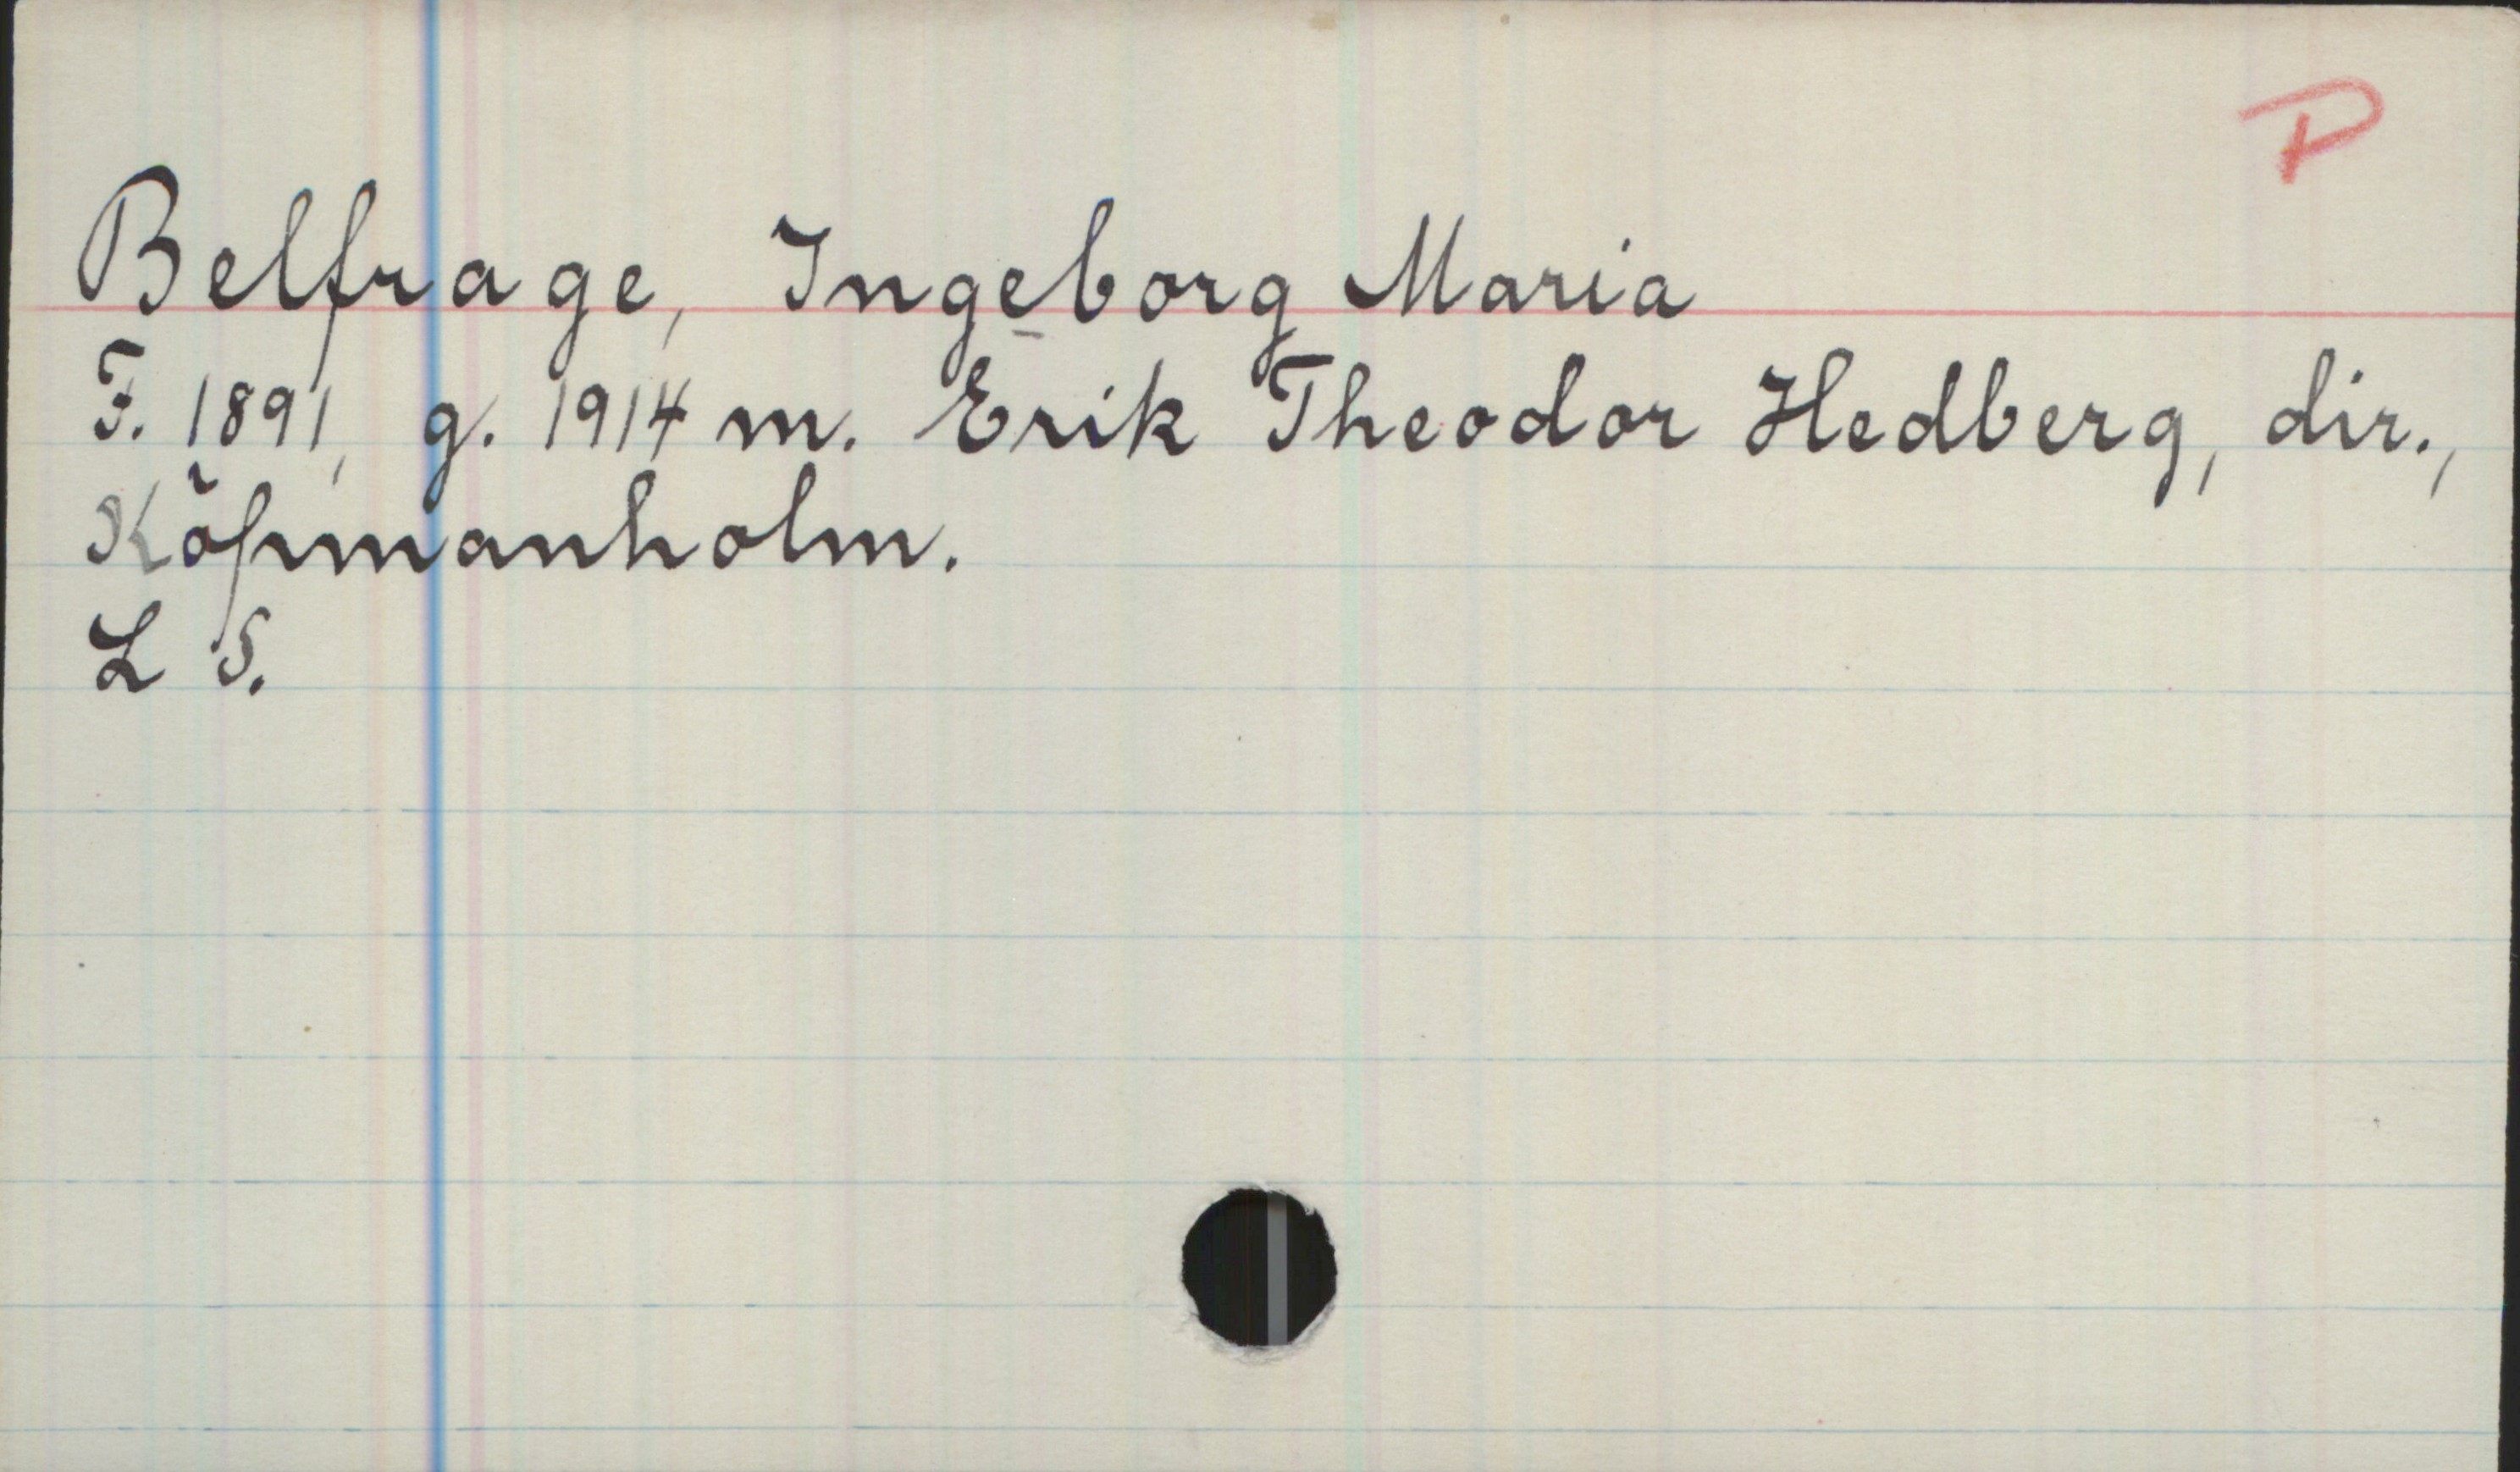 P
Belfrage, Ingeborg Maria
F. 1891, g. 1914 m. Erik Theodor Hedberg, dir.,
Köpmanholm.
L S.